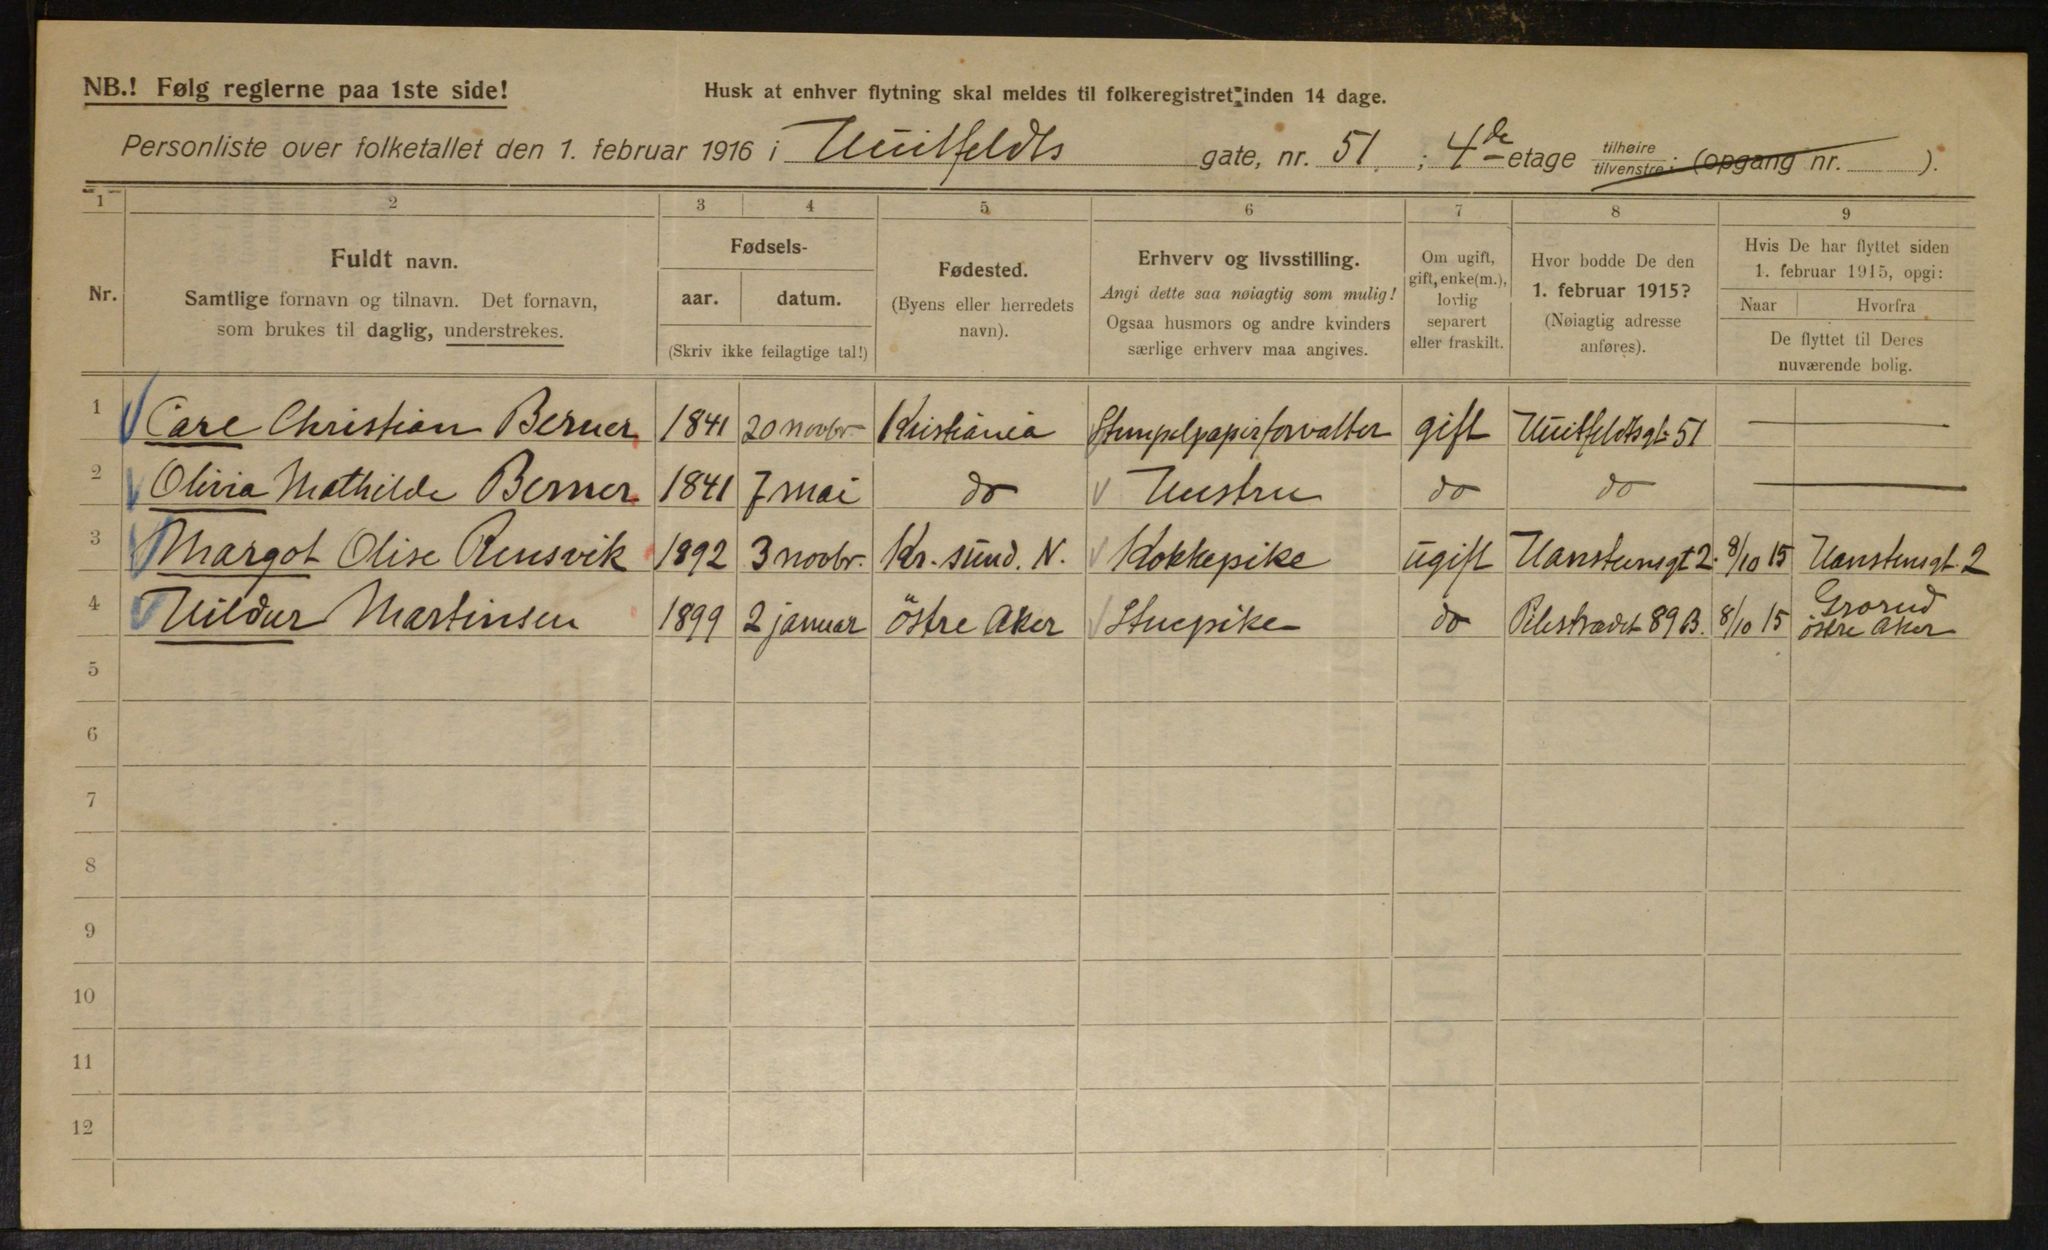 NB.! Følg reglerne paa 1ste side!
Husk at enhver flytning skal meldes til folkeregistret inden 14 dage.
Personliste over folketallet den 1. februar 1916 i Huitfeldts gate, nr. 51 ; 4de etage tilhøire tilvenstre; (opgang nr. ).
1 2 3 4 5 6 7 8 9
Nr.
Fuldt navn.
Samtlige fornavn og tilnavn. Det fornavn,
som brukes til daglig, understrekes.
Fødsels-
aar. datum.
(Skriv ikke feilagtige tal!)
Fødested.
(Byens eller herredets
navn).
Erhverv og livsstilling.
Angi dette saa nøiagtig som mulig!
Ogsaa husmors og andre kvinders
særlige erhverv maa angives.
Om ugift,
gift, enke(m.),
lovlig
separert
eller fraskilt.
Hvor bodde De den
1. februar 1915?
(Nøiagtig adresse
anføres).
Hvis De har flyttet siden
1. februar 1915, opgi:
Naar Hvorfra
De flyttet til Deres
nuværende bolig.
1 Carl Christian Berner 1841 20 novbr. Kristiania Stempelpapirforvalter gift Huitfeldtsgt. 51 —
2 Olivia Mathilde Berner 1841 7 mai do Hustru do do —
3 Margot Olise Rensvik 1892 3 novbr. Kr. sund. N. Kokkepike ugift Hansteensgt 2. 8/10 15 Hansteensgt. 2
4 Hildur Martinsen 1899 2 januar østre Aker Stuepike do Pilestrædet 89 B. 8/10 15 Grorud østre Aker
5
6
7
8
9
10
11
12